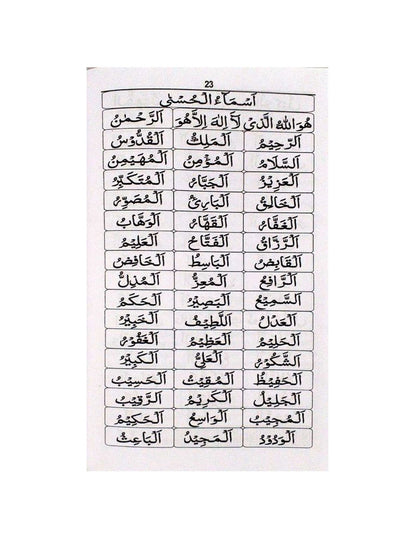 23
اَسْمَآءُ الْحُسْنٰی
هُوَ اللهُ الَّذِیْ لَاۤ اِلٰهَ اِلَّا هُوَ اَلرَّحْمٰنُ
اَلرَّحِیْمُ اَلْمَلِكُ اَلْقُدُّوْسُ
اَلسَّلَامُ اَلْمُؤْمِنُ اَلْمُهَیْمِنُ
اَلْعَزِیْزُ اَلْجَبَّارُ اَلْمُتَكَبِّرُ
اَلْخَالِقُ اَلْبَارِئُ اَلْمُصَوِّرُ
اَلْغَفَّارُ اَلْقَهَّارُ اَلْوَهَّابُ
اَلرَّزَّاقُ اَلْفَتَّاحُ اَلْعَلِیْمُ
اَلْقَابِضُ اَلْبَاسِطُ اَلْخَافِضُ
اَلرَّافِعُ اَلْمُعِزُّ اَلْمُذِلُّ
اَلسَّمِیْعُ اَلْبَصِیْرُ اَلْحَكَمُ
اَلْعَدْلُ اَللَّطِیْفُ اَلْخَبِیْرُ
اَلْحَلِیْمُ اَلْعَظِیْمُ اَلْغَفُوْرُ
اَلشَّكُوْرُ اَلْعَلِیُّ اَلْكَبِیْرُ
اَلْحَفِیْظُ اَلْمُقِیْتُ اَلْحَسِیْبُ
اَلْجَلِیْلُ اَلْكَرِیْمُ اَلرَّقِیْبُ
اَلْمُجِیْبُ اَلْوَاسِعُ اَلْحَكِیْمُ
اَلْوَدُوْدُ اَلْمَجِیْدُ اَلْبَاعِثُ